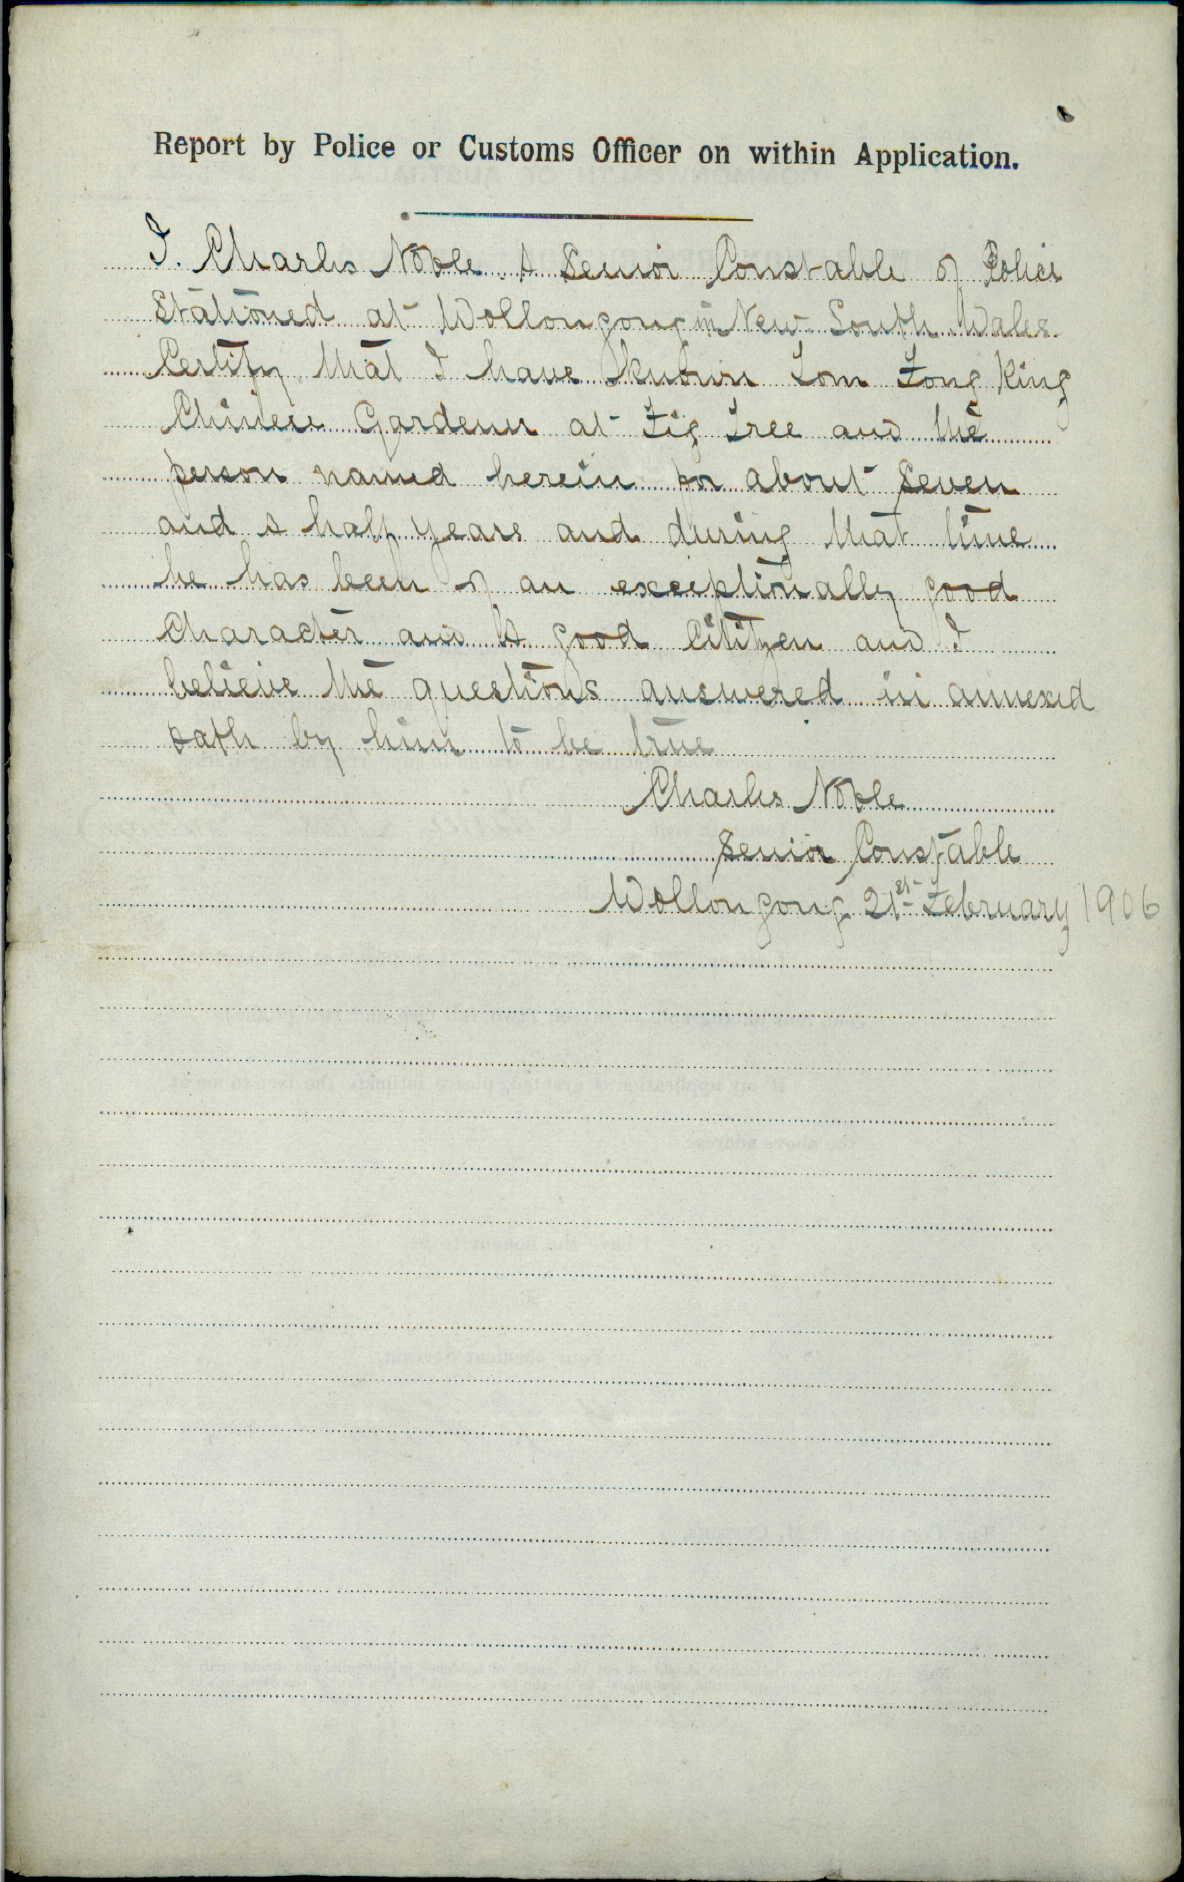 Report by Police or Customs Officer on within Application.
I. Charles Noble. A Senior Constable of Police
Stationed at Wollongong in New South Wales
Certify that I have known Tom Fong King
Chinese Gardener at Fig Tree and the
person named herein for about Seven
and a half years and during that time
he has been of an exceptionally good
Character and A good Citizen and I
believe the questions answered in annexed
oath by him to be true
Charles Noble
Senior Constable
Wollongong 21st February 1906